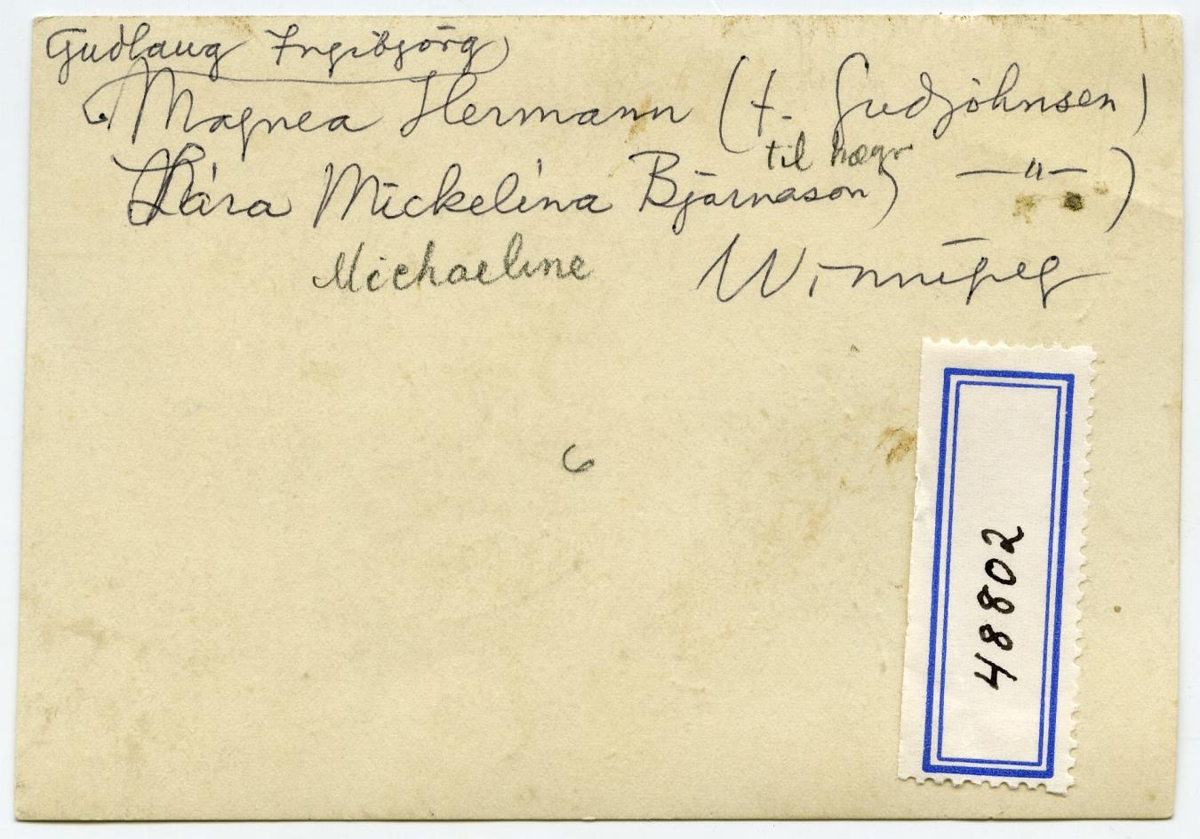 Gudlaug Ingibjörg
Magnea Hermann (f. Gudjohnsen)
til hægr
Lára Mickelína Bjarnason) —"—)
Michaeline Winnipeg
6
48802